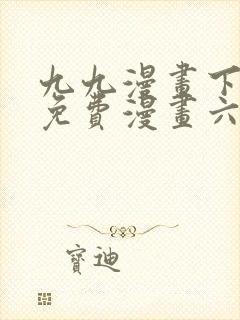 九九漫畫下
免費漫畫六
寶迪